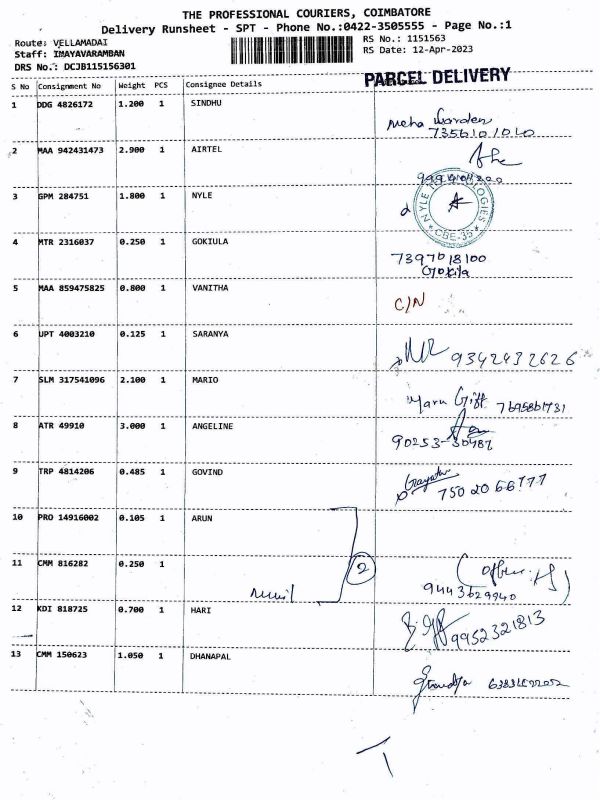 THE PROFESSIONAL COURIERS, COIMBATORE
Delivery Runsheet - SPT - Phone No.:0422-3505555 - Page No.:1
Route: VELLAMADAI
RS No.: 1151563
Staff: IMAYAVARAMBAN
RS Date: 12-Apr-2023
DRS No.: DCJB115156301
PARCEL DELIVERY
S No Consignment No Weight PCS Consignee Details
1 DDG 4826172 1.200 1 SINDHU
Neha
7356101010
2 MAA 942431473 2.900 1 AIRTEL
3 GPM 284751 1.800 1 NYLE
NYLE
CBE-35
4 MTR 2316037 0.250 1 GOKIULA
7397018100
Gokila
5 MAA 859475825 0.800 1 VANITHA
C/N
6 UPT 4003210 0.125 1 SARANYA
9342432626
7 SLM 317541096 2.100 1 MARIO
7695861731
8 ATR 49910 3.000 1 ANGELINE
90253-30787
9 TRP 4814206 0.485 1 GOVIND
7502066777
10 PRO 14916002 0.105 1 ARUN
11 CMM 816282 0.250 1
2
9443629940
12 KDI 818725 0.700 1 HARI
9952321813
13 CMM 150623 1.050 1 DHANAPAL